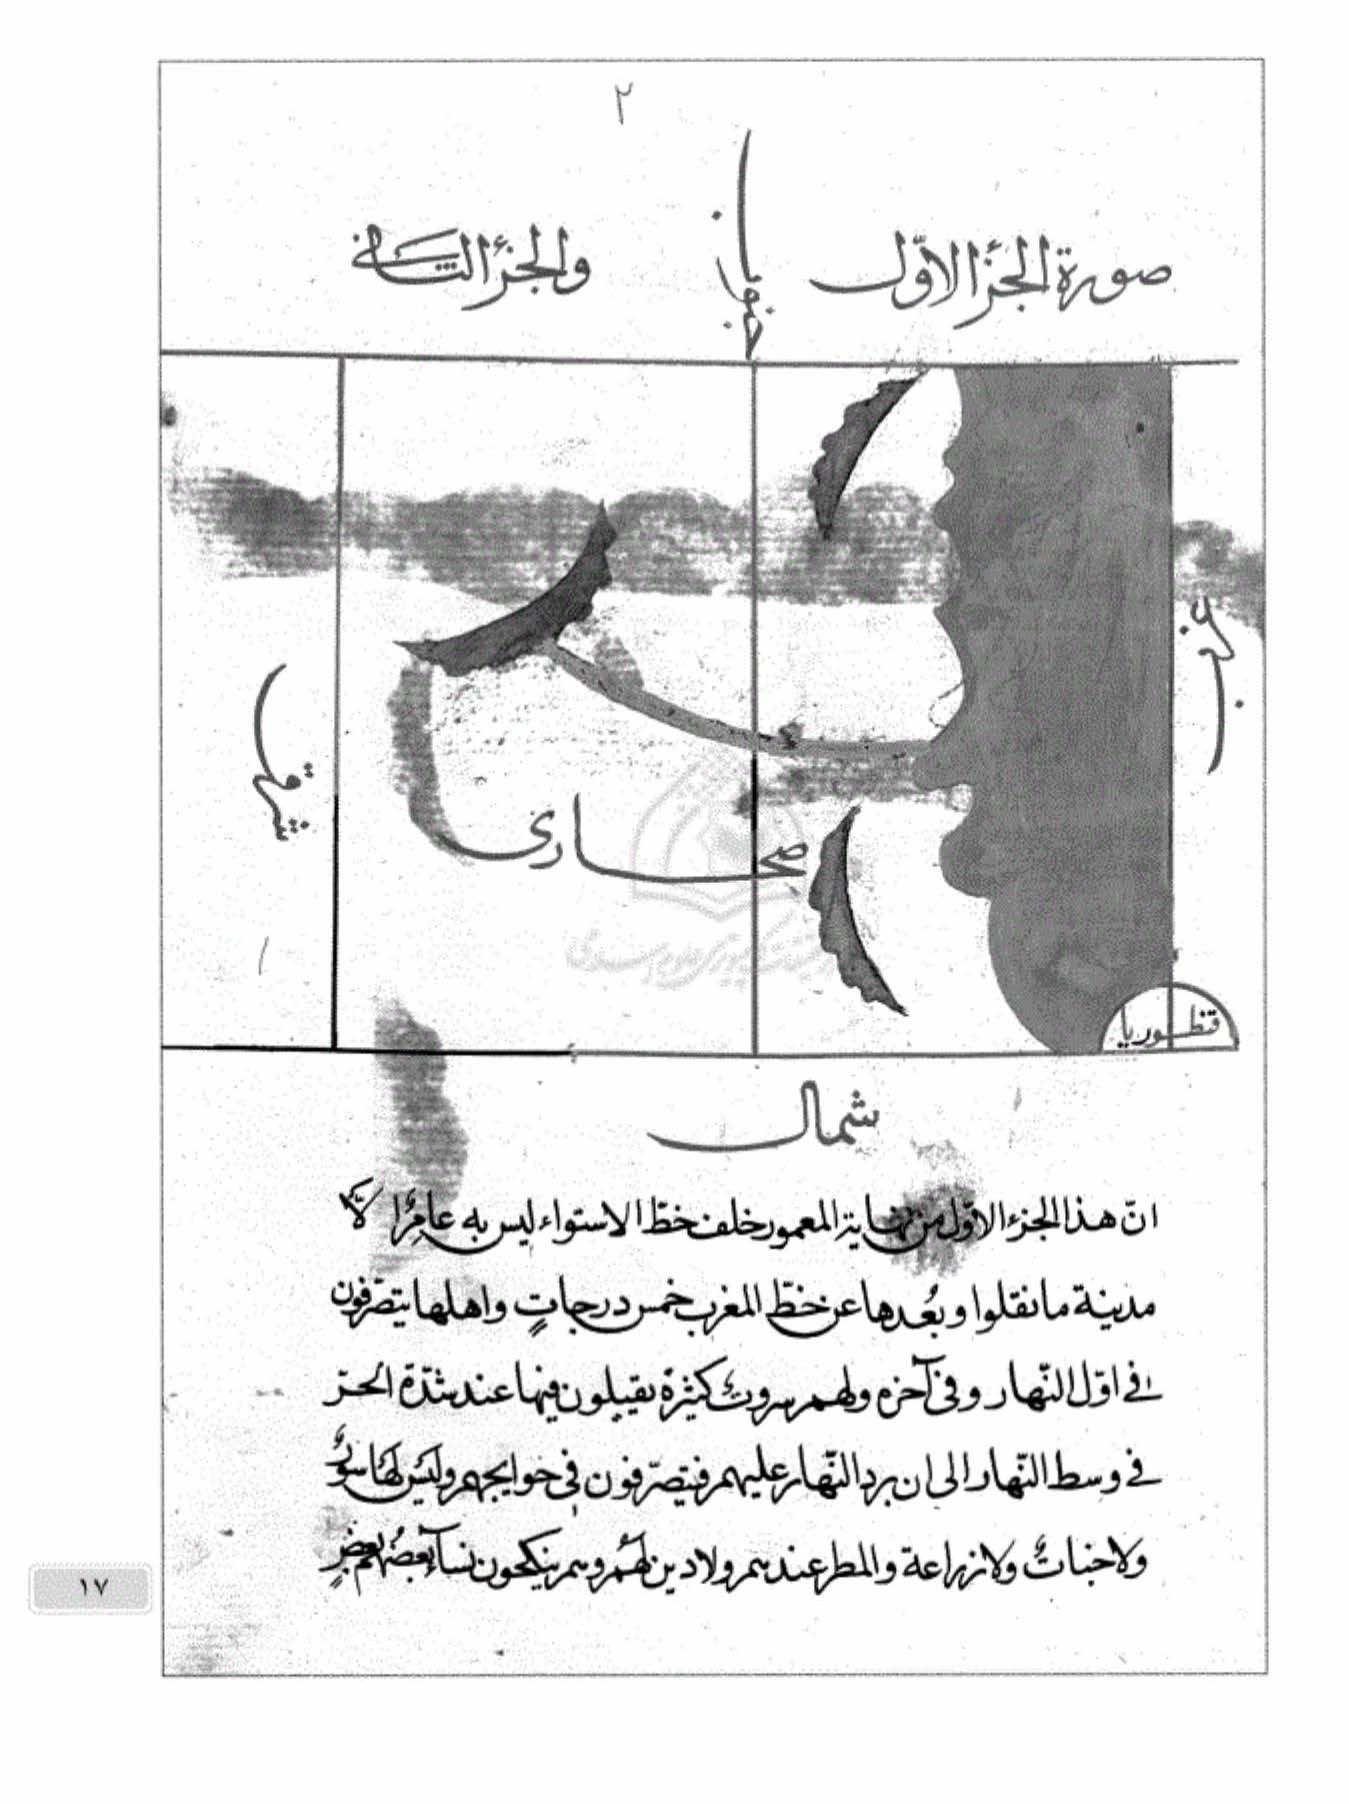 ٢
صورة الجزء الاوّل جنوبا والجزء الثانى
غربا
شرقا
صحارى
١
قنطوريا
شمال
انّ هذا الجزء الاوّل من نهاية المعمور خلف خطّ الاستواء ليس به عامرًا الّا
مدينة ما نقلوا وبُعدها عن خطّ المغرب خمس درجاتٍ واهلها يتصرّفون
فى اوّل النّهار وفى آخره ولهم سروبٌ كثيرة يقيلون فيها عند شدّة الحرّ
فى وسط النّهار الى ان يرد النّهار عليهم فيتصرّفون فى حوايجهم وليس لها سورٌ
ولا جنباتٌ ولا زراعة والمطر عندهم ولا دين لهُم وهم ينكحون نسآء بعضهُم بعضٍ
١٧